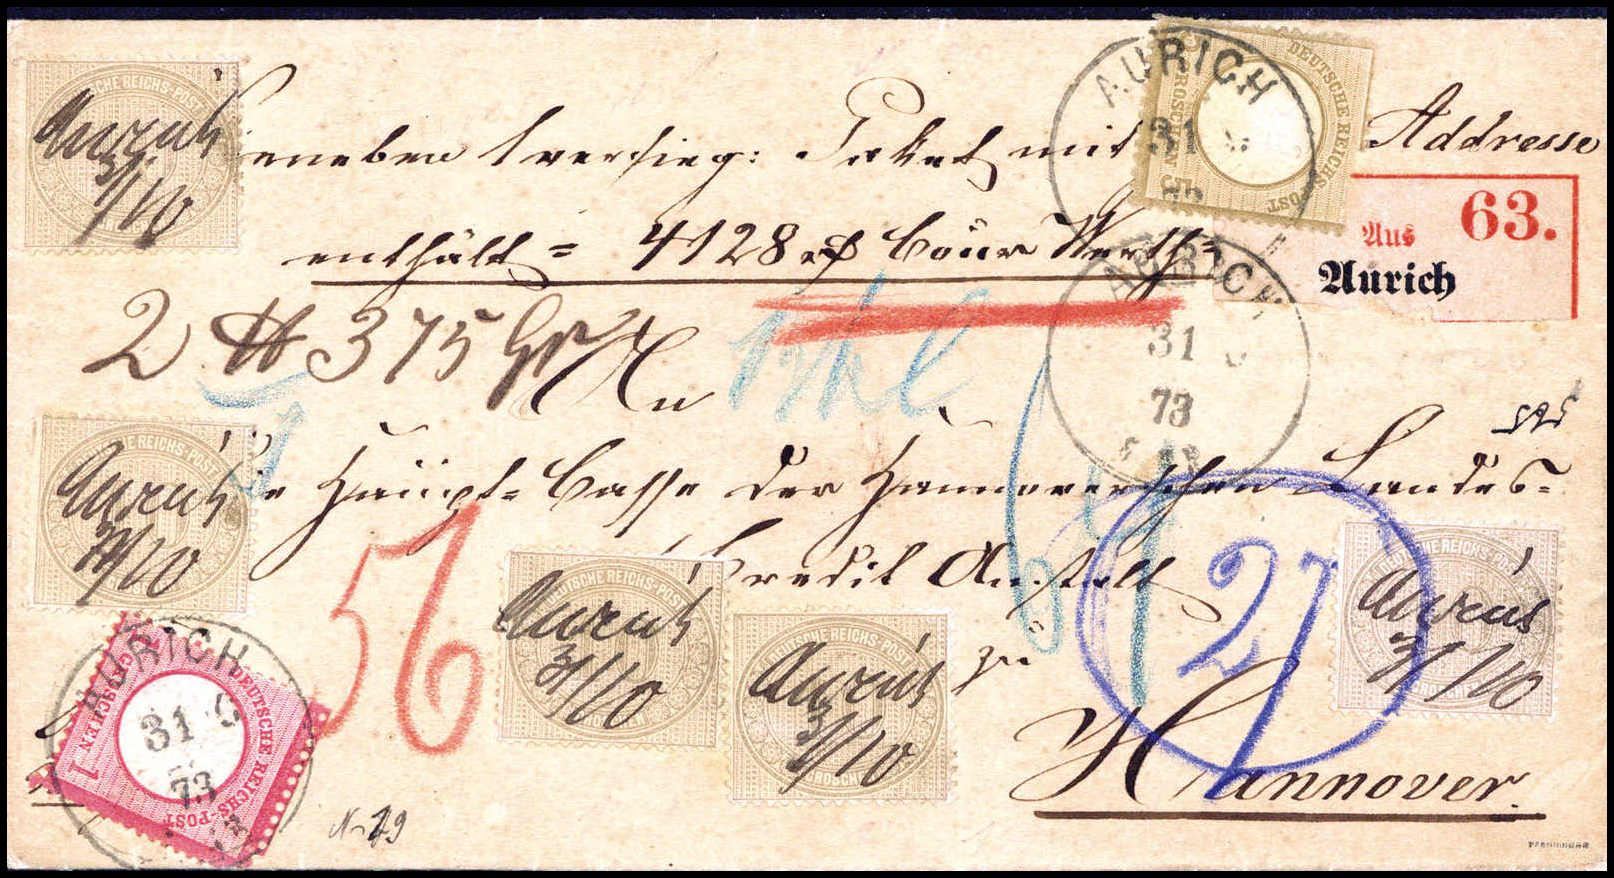 Aurich
31/10
DEUTSCHE REICHS-POST
Hieneben 1 versieg: Paket mit Addresse
enthält = 4128 rf Cour Werth=
AURICH
31 
DEUTSCHE REICHS-POST
5 GROSCHEN 5
63.
Aus
Aurich
2 ℔ 375 Gr
An
AURICH
31
73
Aurich
31/10
DEUTSCHE REICHS-POST
die Haupt=Casse der Hannoverschen Landes=
Credit Anstalt
zu
Hannover.
56
27
Aurich
31/10
DEUTSCHE REICHS-POST
Aurich
31/10
DEUTSCHE REICHS-POST
GROSCHEN
Aurich
31/10
DEUTSCHE REICHS-POST
GROSCHEN
AURICH
31
73
DEUTSCHE REICHS-POST
GROSCHEN 1